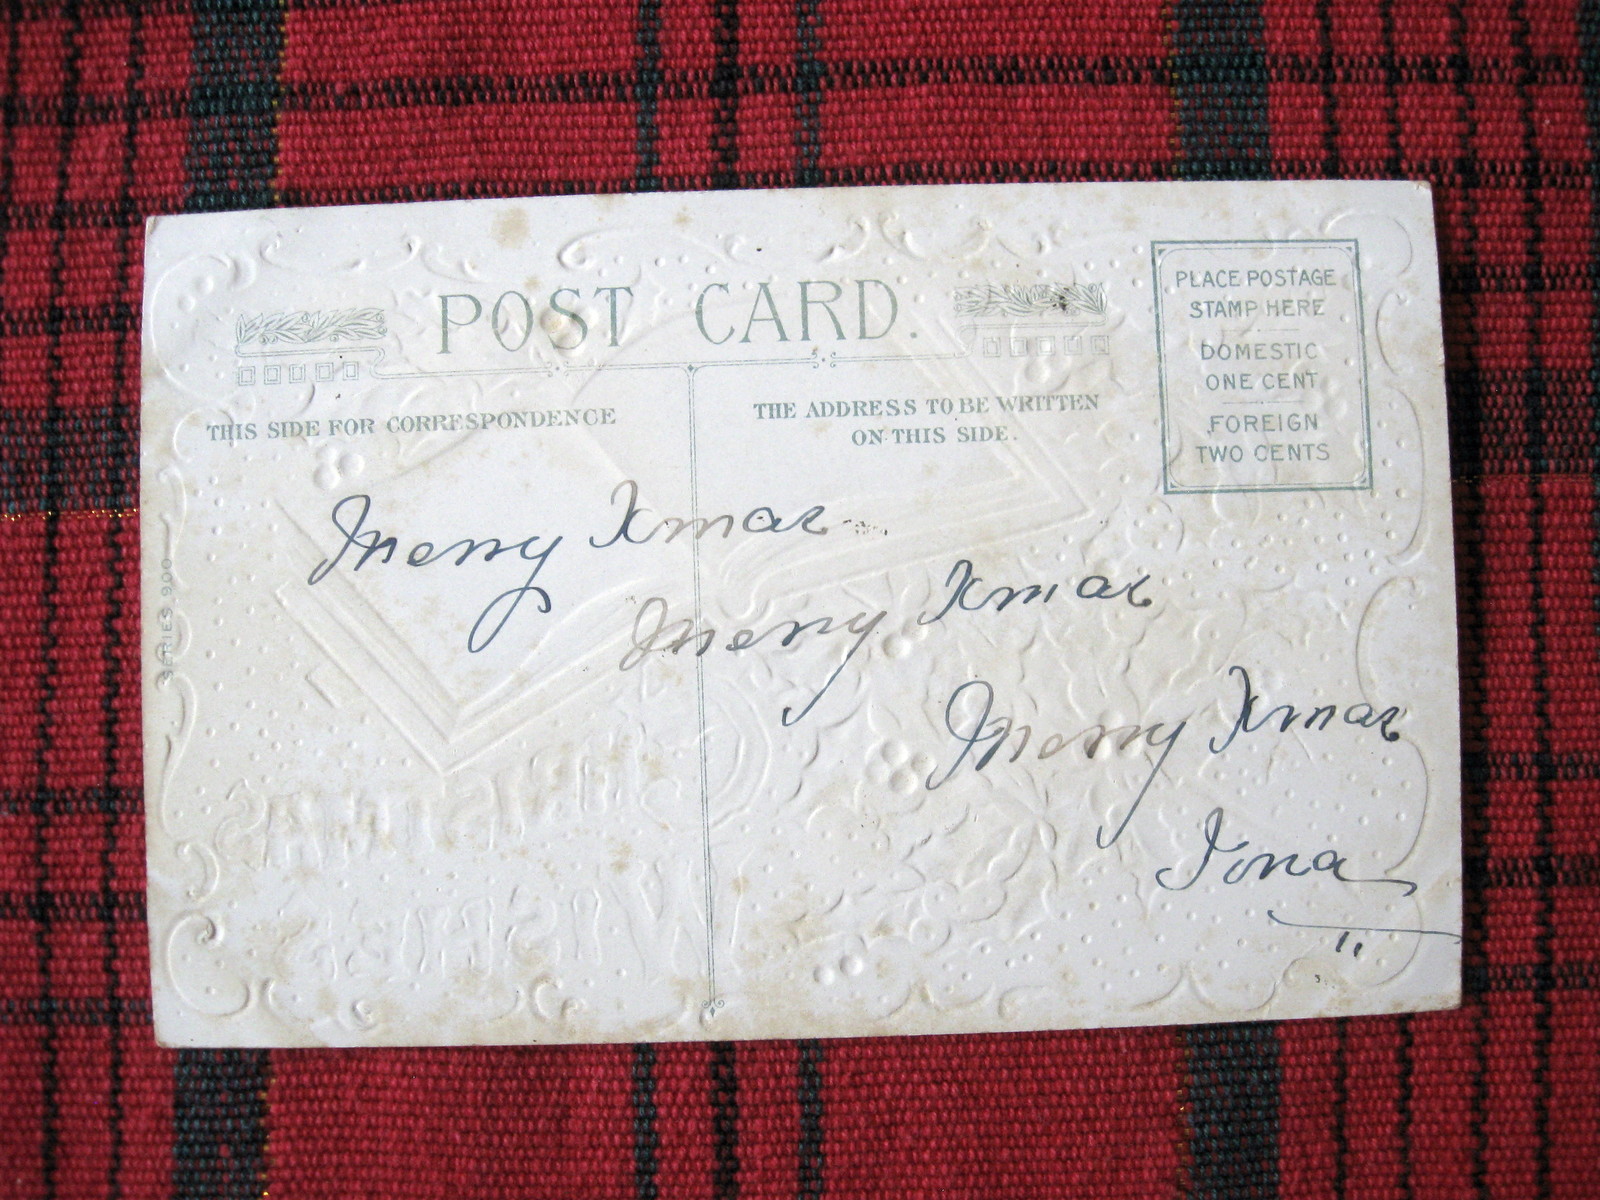 POST CARD.
PLACE POSTAGE
STAMP HERE
DOMESTIC
ONE CENT
FOREIGN
TWO CENTS
THIS SIDE FOR CORRESPONDENCE
THE ADDRESS TO BE WRITTEN
ON THIS SIDE.
SERIES 900
Merry Xmas
Merry Xmas
Merry Xmas
Iona
CHRISTMAS
WISHES